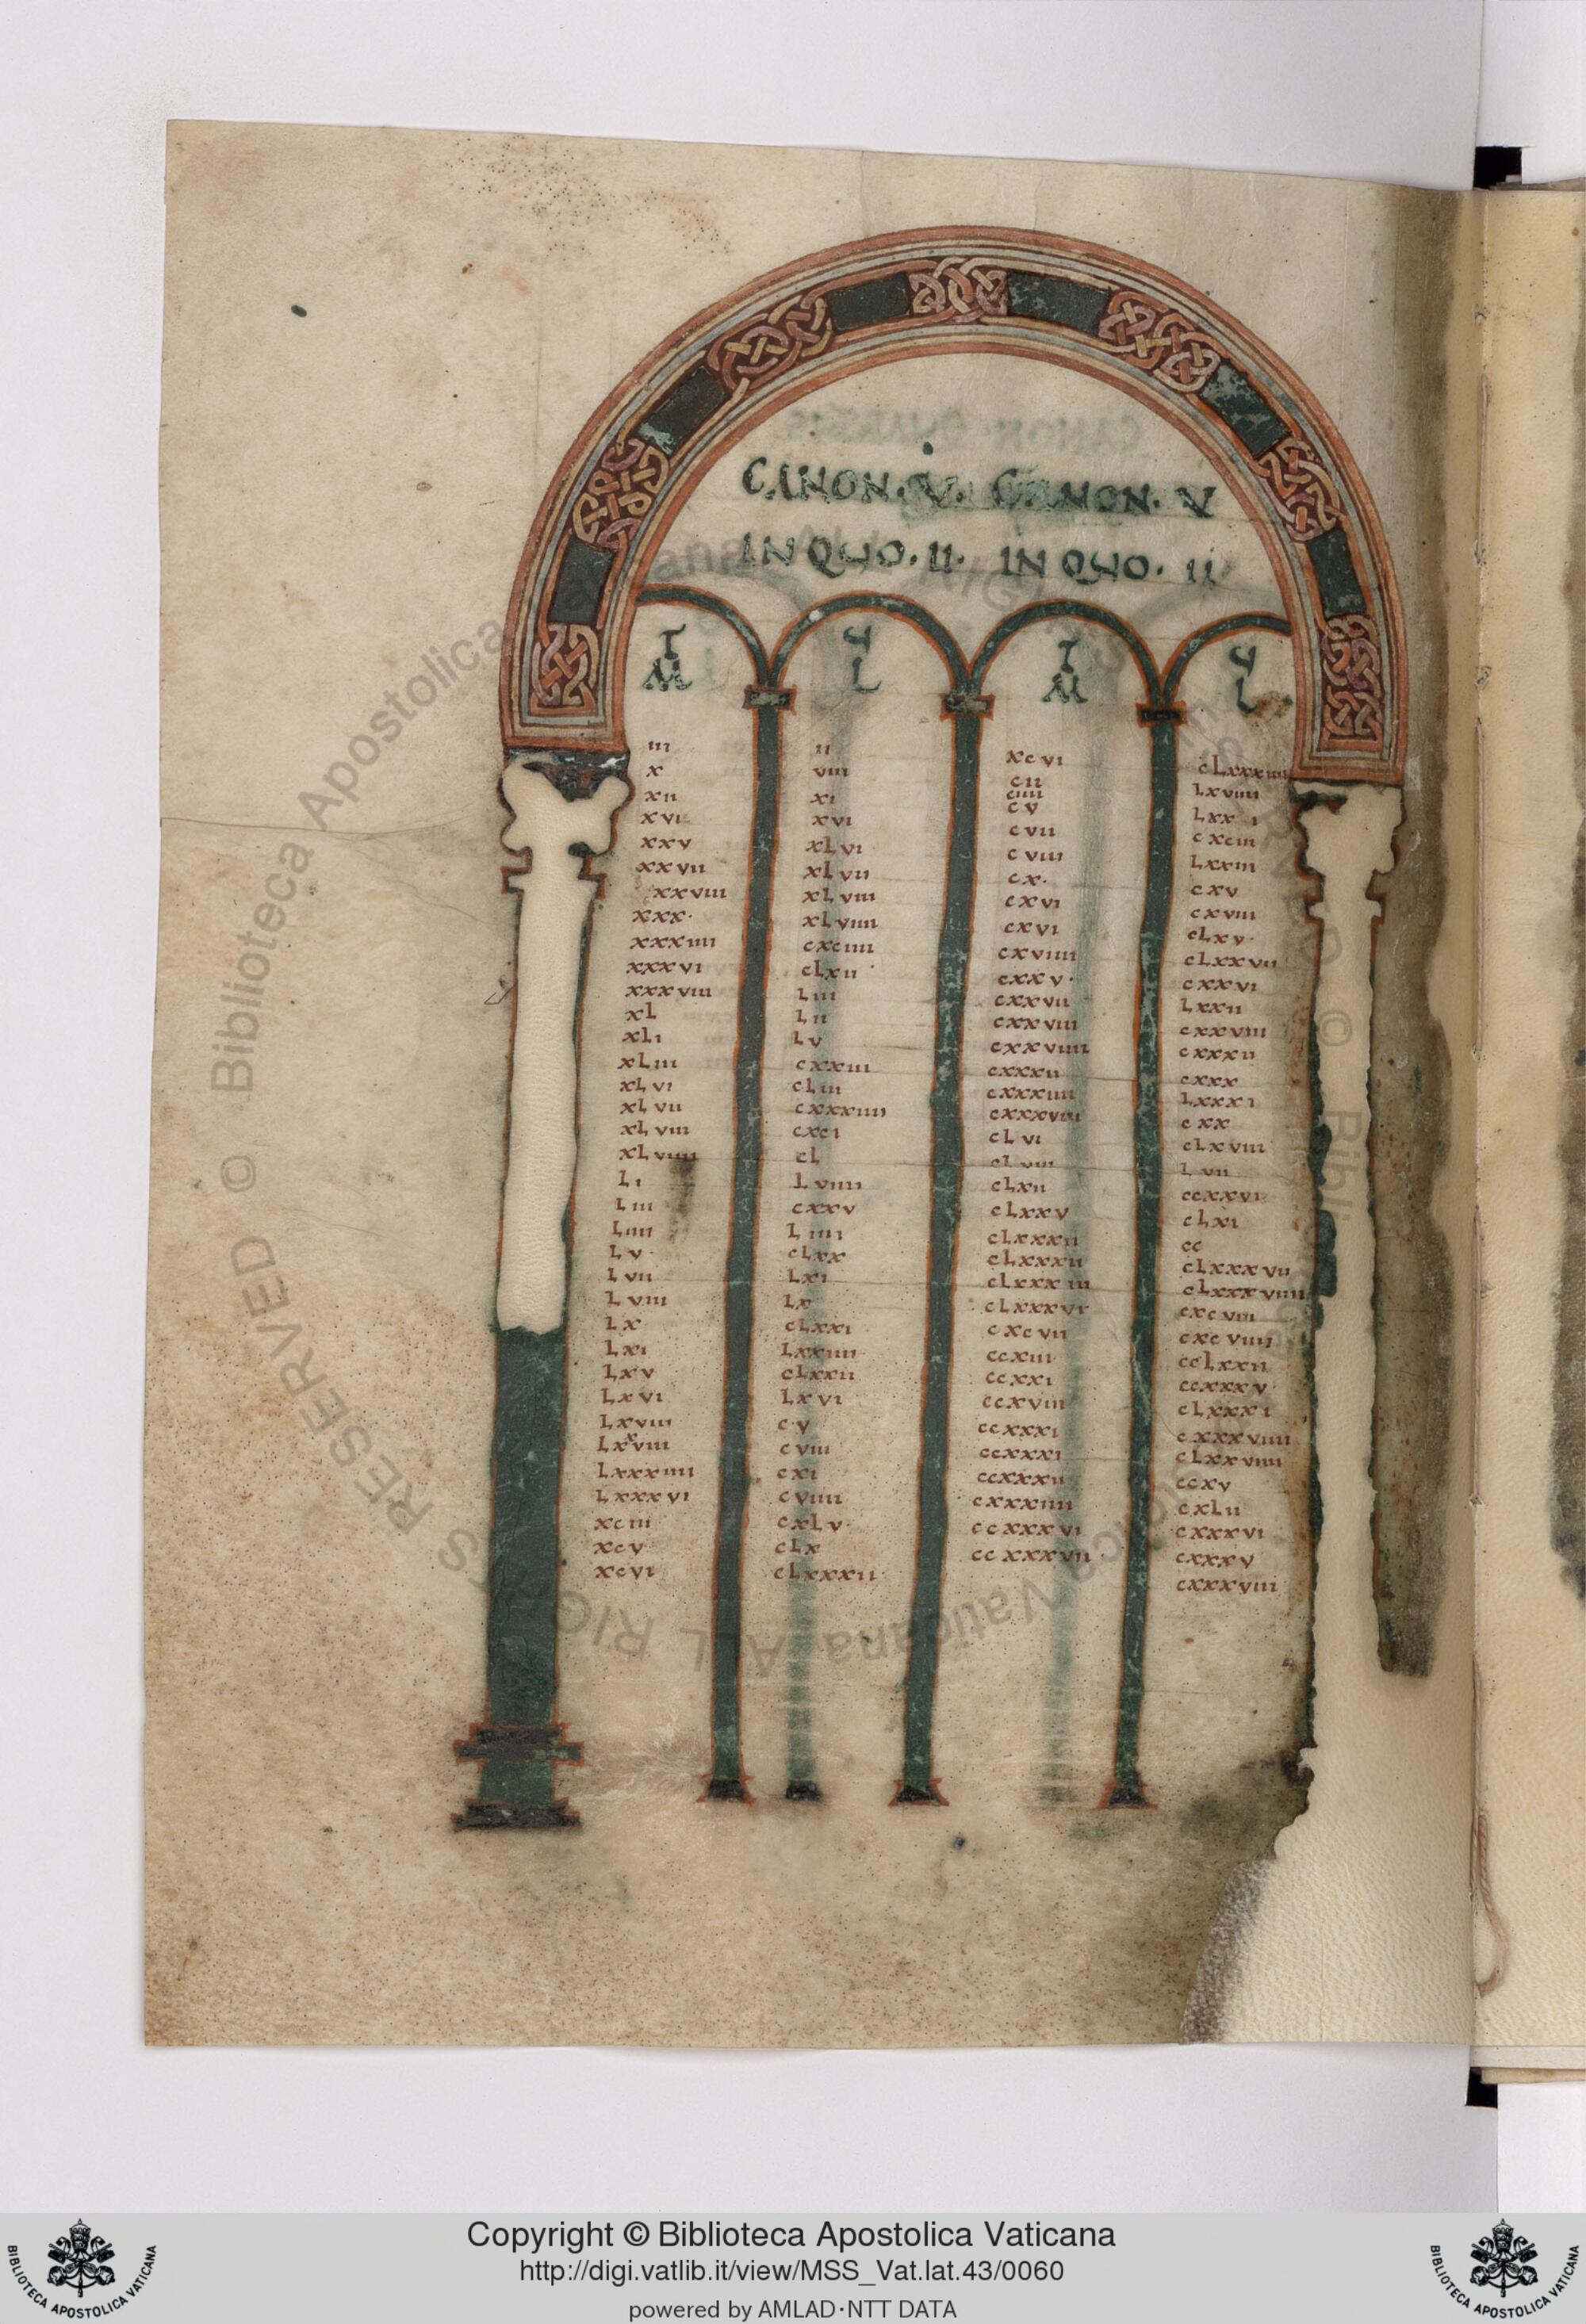 CANON. V. CANON. V
IN QUO. II. IN QUO. II
M L M L
iii
x
xii
xvi
xxv
xxvii
xxviii
xxx.
xxxiiii
xxxvi
xxxviii
xl
xli
xliii
xlvi
xlvii
xlviii
xlviiii
li
liii
liiii
lv.
lvii
lviii
lx
lxi
lxv
lxvi
lxviii
lxxviii
lxxxiiii
lxxxvi
xciii
xcv
xcvi
ii
viii
xi
xvi
xlvi
xlvii
xlviii
xlviiii
cxciiii
clxii
liii
lii
lv
cxxiii
cliii
cxxxiiii
cxci
cl
lviiii
cxxv
liiii
clxx
lxi
lx
clxxi
lxxiiii
clxxii
lxvi
cv
cviii
cxi
cviiii
cxlv.
clx
clxxxii
xcvi
cii
ciiii
cv
cvii
cviii
cx.
cxvi
cxvi
cxviiii
cxxv.
cxxvii
cxxviii
cxxviiii
cxxxii
cxxxiiii
cxxxviii
clvi
clviii
clxii
clxxv
clxxxii
clxxxii
clxxxiii
clxxxvi
cxcvii
ccxiii
ccxxi
ccxviii
ccxxxi
ccxxxi
ccxxxii
cxxxiiii
ccxxxvi
ccxxxvii
clxxxiiii
lxviiii
lxx i
cxciii
lxxiii
cxv
cxviii
clxv.
clxxvii
cxxvi
lxxii
cxxviii
cxxxii
cxxx
lxxxi
cxx
clxviii
lvii
ccxxvi
clxi
cc
clxxxvii
clxxxviiii
cxcviii
cxcviiii
cclxxii
ccxxxv
clxxxi
cxxxviiii
clxxviiii
ccxv
cxlii
cxxxvi
cxxxv
cxxxviii
Copyright © Biblioteca Apostolica Vaticana
http://digi.vatlib.it/view/MSS_Vat.lat.43/0060
powered by AMLAD·NTT DATA
BIBLIOTECA APOSTOLICA VATICANA
BIBLIOTECA APOSTOLICA VATICANA